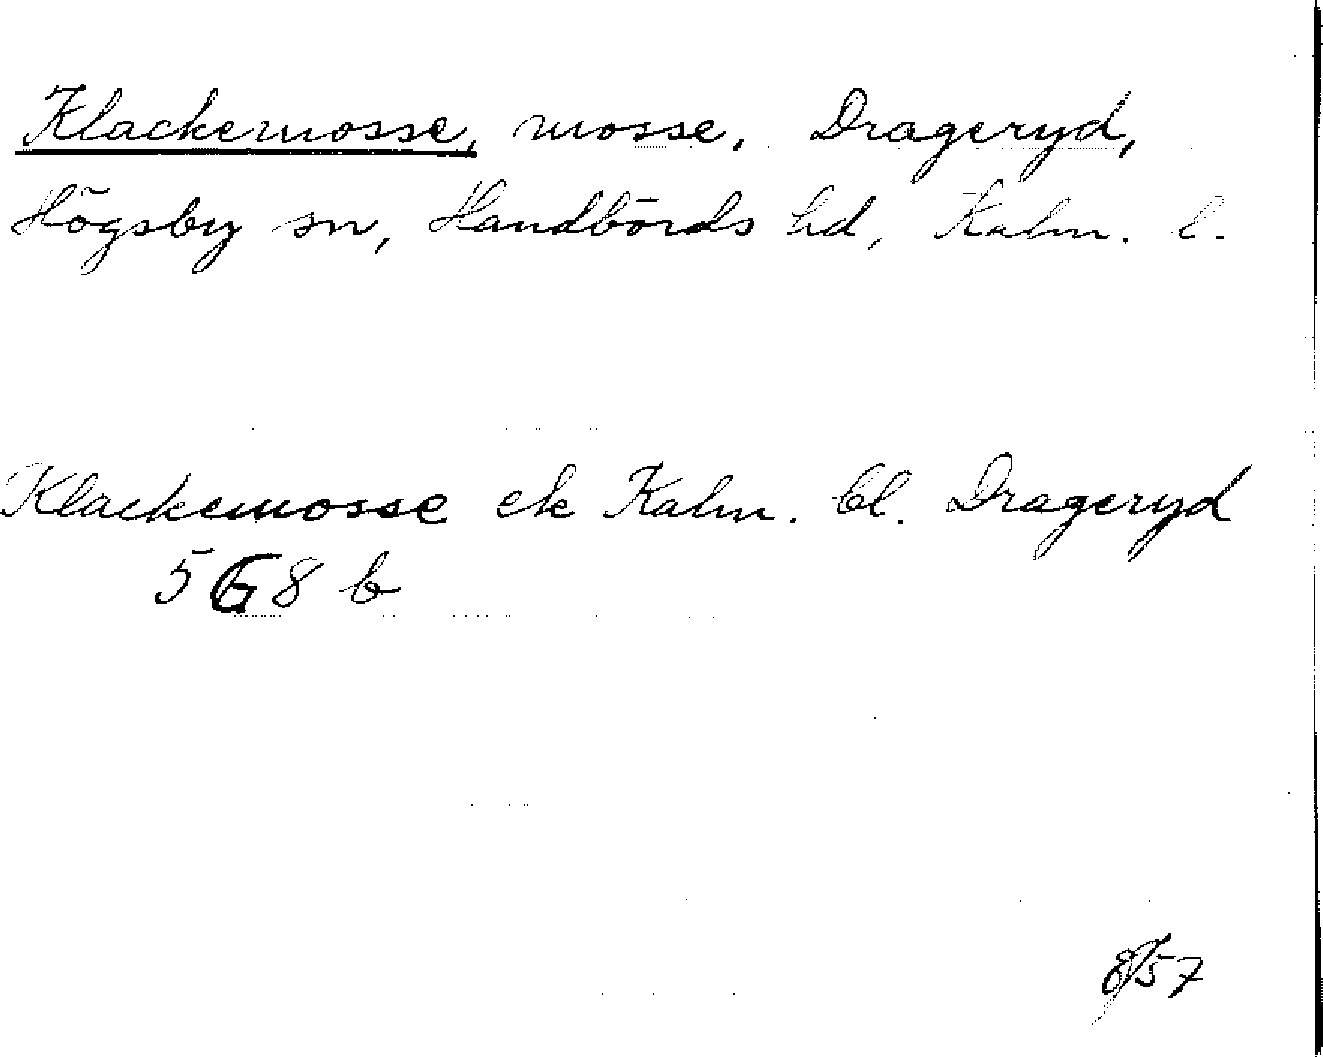 Klackemosse, mosse, Drageryd,
Högsby sn, Handbörds hd, Kalm. l.
Klackemosse ek Kalm. bl. Drageryd
5G8 b
8/57